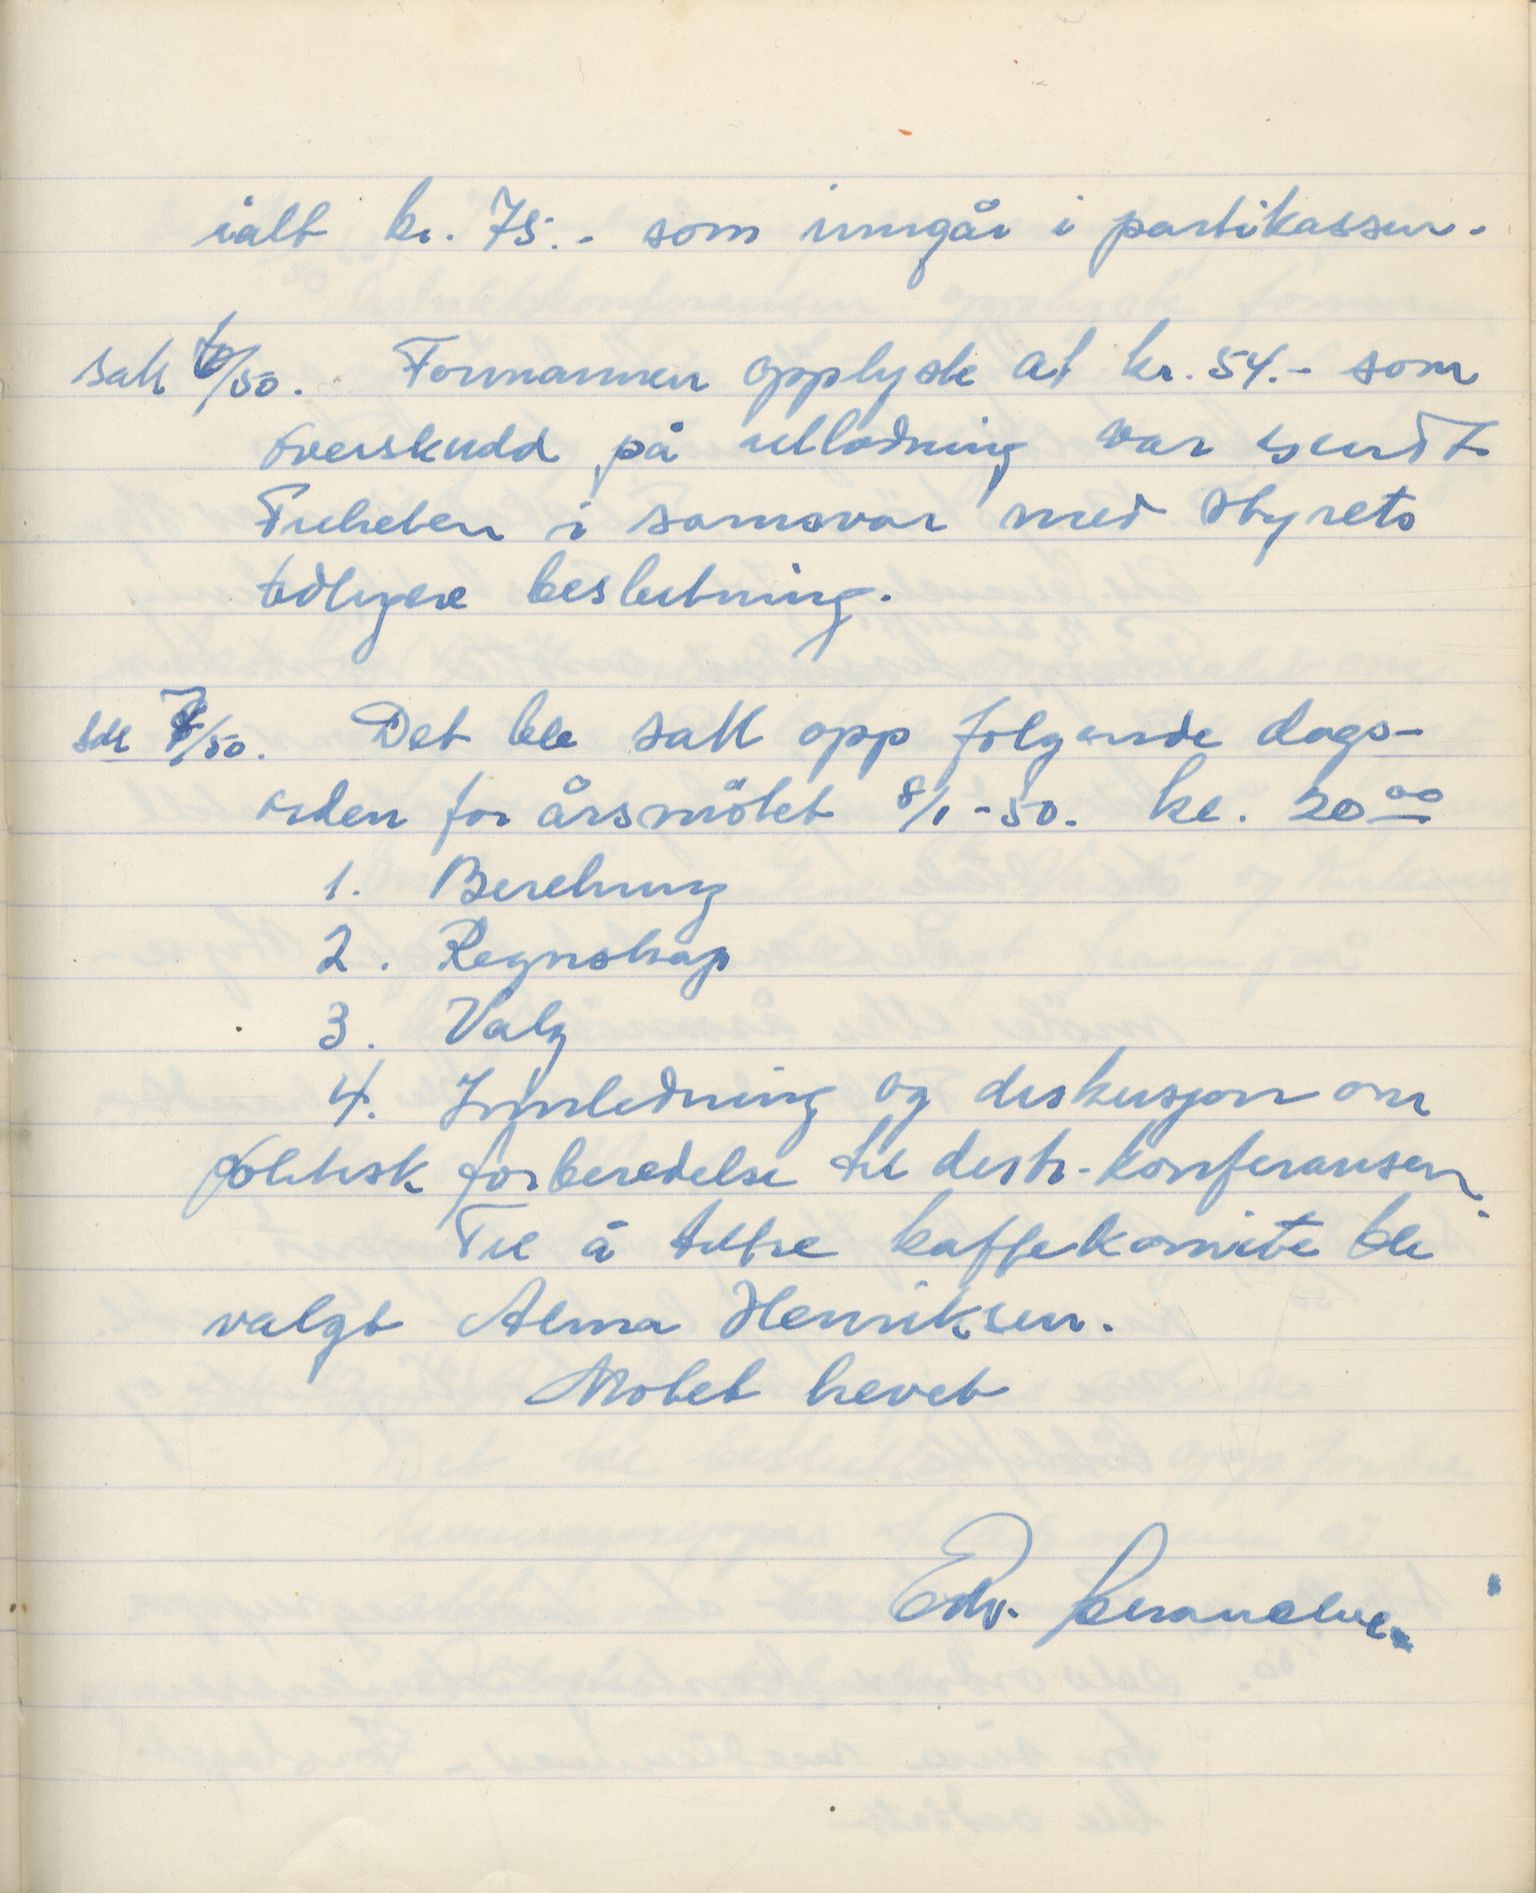 ialt kr. 75.- som inngår i partikassen.
Sak 6/50. Formannen opplyste at kr. 54.- som
overskudd på utlodning var sendt
Friheten i samsvar med styrets
tidligere beslutning.
Sak 7/50. Det ble satt opp følgende dags-
orden for årsmötet 8/1-50. kl. 20 00
1. Beretning
2. Regnskap
3. Valg
4. Innledning og diskusjon om
politisk forberedelse til distr.-konferansen.
Til å tiltre kaffekomite ble
valgt Alma Henriksen.
Motet hevet
Edv.